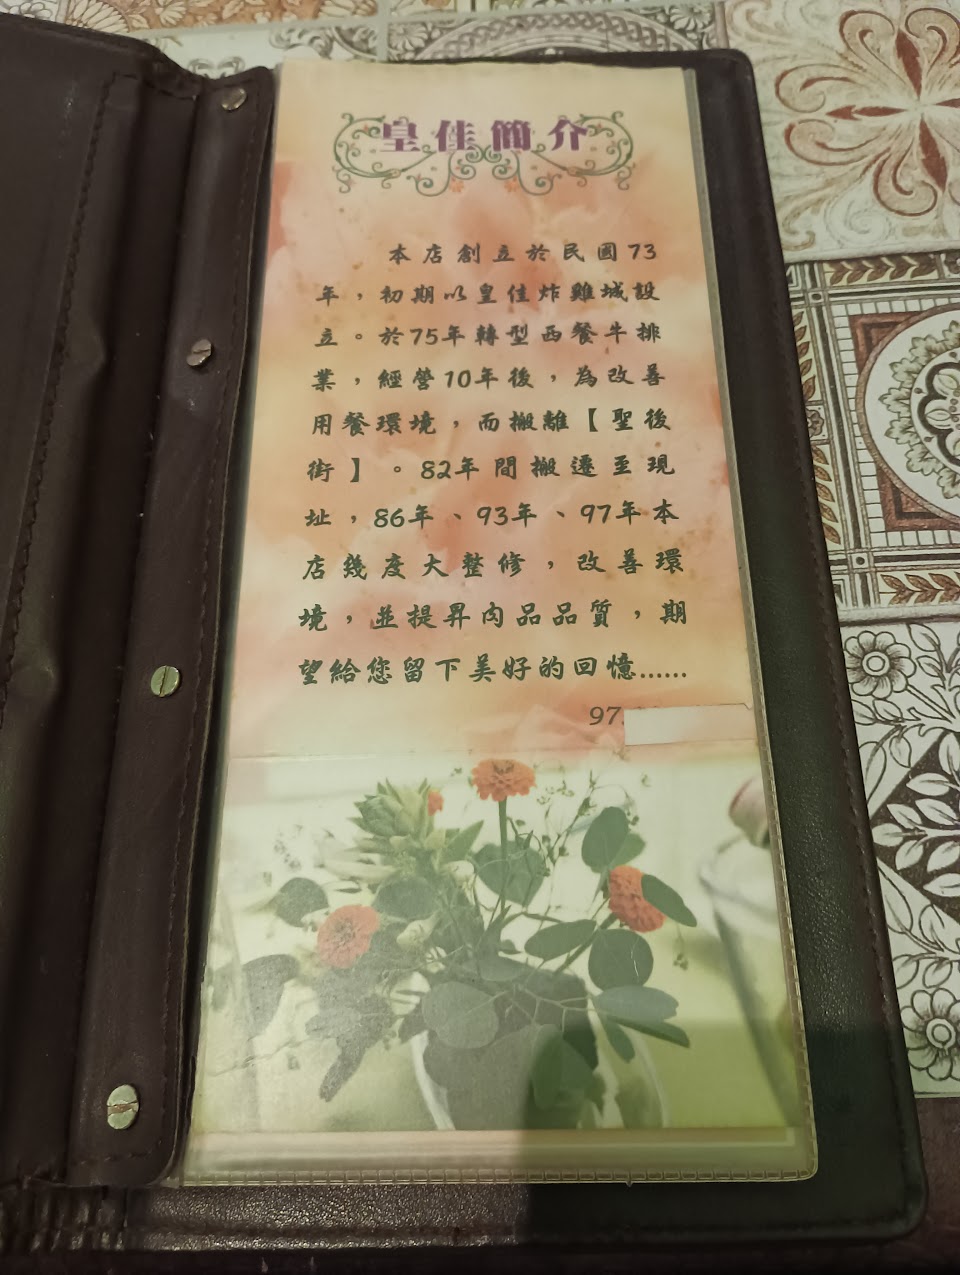 皇佳簡介
本店創立於民國73
年，初期以皇佳炸雞城設
立。於75年轉型西餐牛排
業，經營10年後，為改善
用餐環境，而搬離【聖後
街】。82年間搬遷至現
址，86年、93年、97年本
店幾度大整修，改善環
境，並提昇肉品品質，期
望給您留下美好的回憶......
97.